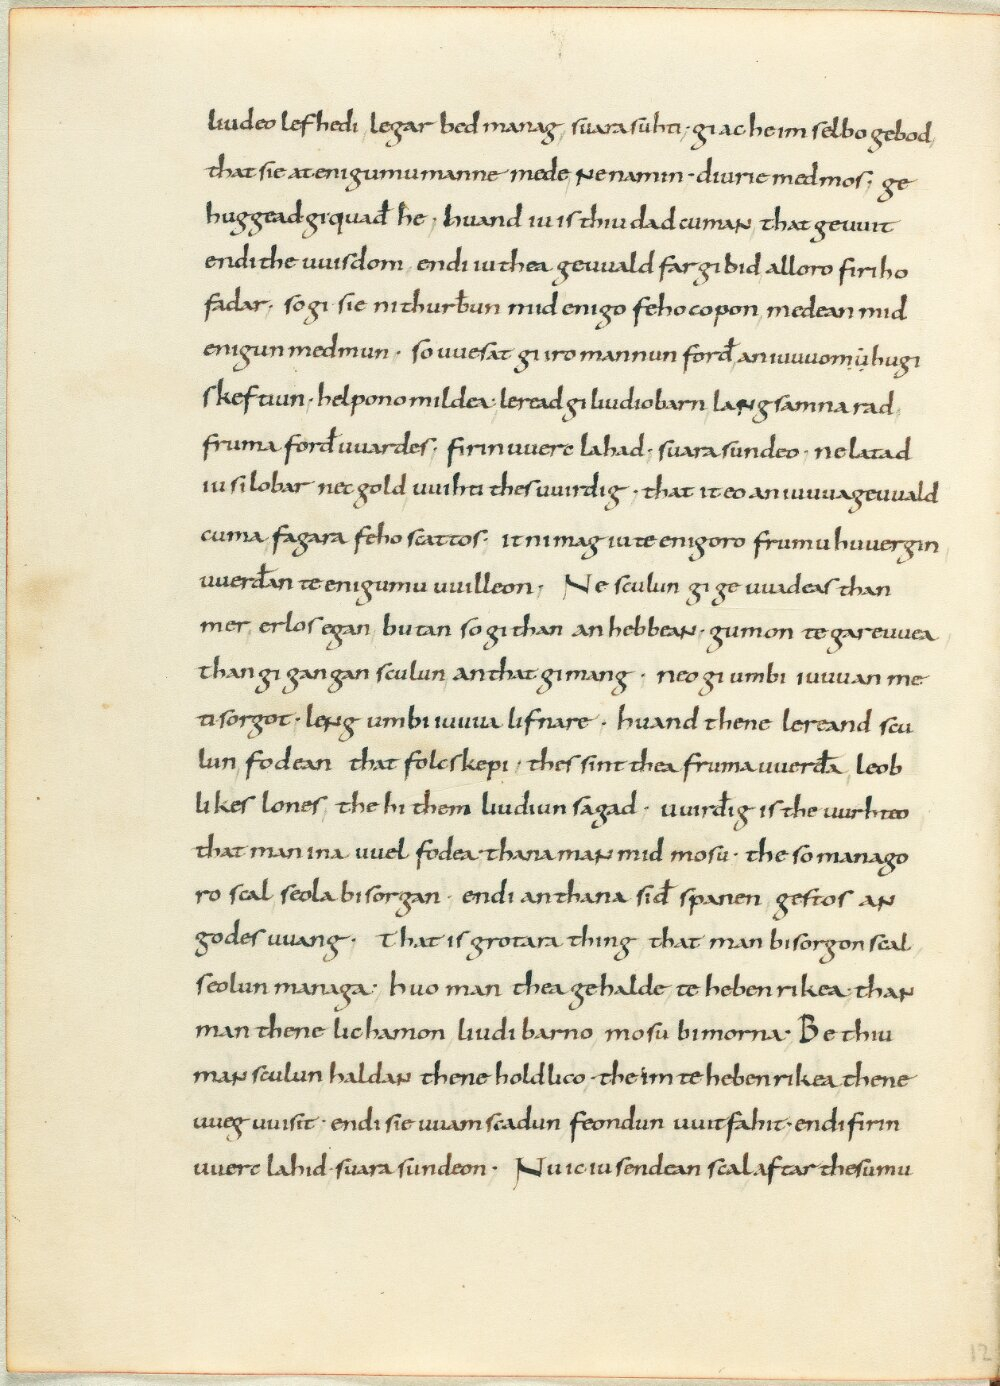 liudeo lefhedi, legar bed manag, suara suhti; gi ac he im selbo gebod,
that sie at enigumu manne mede, ne namin · diurie medmos; ge
huggead gi quađ he; huand iu is thiu dad cuman, that geuuit
endi the uuisdom, endi iu thea geuuald fargibid alloro firiho
fadar · so gi sie ni thurƀun mid enigo feho copon, medean mid
enigun medmun · so uuesat gi iro mannun forđ, an iuuuomu hugi
skeftiun · helpono mildea · leread gi liudiobarn, langsamna rad,
fruma forđuuardes; firinuuerc lahad · suara sundeo · ne latad
iu silobar nec gold uuihti thes uuirdig · that it eo an iuuua geuuald
cuma, fagara feho scattos · it ni mag iu te enigoro frumu huuergin,
uuerđan te enigumu uuilleon · Ne sculun gi geuuadeas than
mer, erlos egan, butan so gi than an hebbean · gumon te gareuuea,
than gi gangan sculun, an that gimang · neo gi umbi iuuuan me
ti sorgot · leng umbi iuuua lifnare · huand thene lereand scu
lun, fodean that folcskepi · thes sint thea fruma uuerđa, leob
likes lones, the hi them liudiun sagad · uuirđig is the uurhteo
that man ina uuel fodea · thana man mid mosu · the so manago
ro scal seola bisorgan · endi an thana siđ spanen, gestos an
godes uuang · That is grotara thing, that man bisorgon scal,
seolun managa · huo man thea gehalde, te hebenrikea · than
man thene lichamon, liudibarno, mosu bimorna · Be thiu
man sculun haldan thene holdlico · the im te hebenrikea, thene
uueg uuisit · endi sie uuamscadun feondun uuitfahit · endi firin
uuerc lahid · suara sundeon · Nu ic iu sendean scal aftar thesumu
12